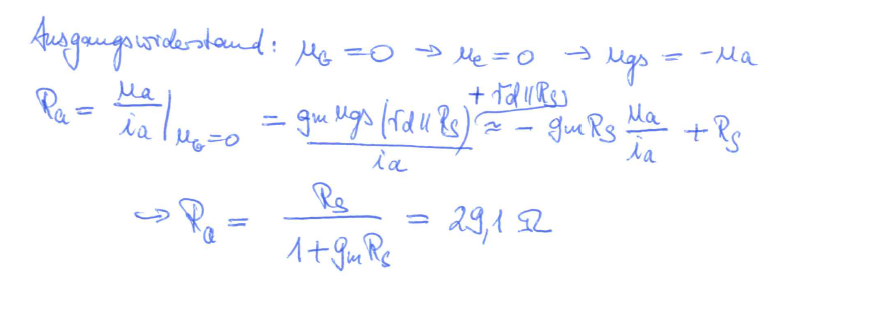 Ausgangswiderstand: u_G = 0 → u_e = 0 → u_gs = -u_a
R_a = u_a / i_a |_{u_G = 0} = g_m u_gs (r_d || R_S) / i_a + r_d || R_S ≈ - g_m R_S u_a / i_a + R_S
↪ R_a = R_S / (1 + g_m R_S) = 29,1 Ω